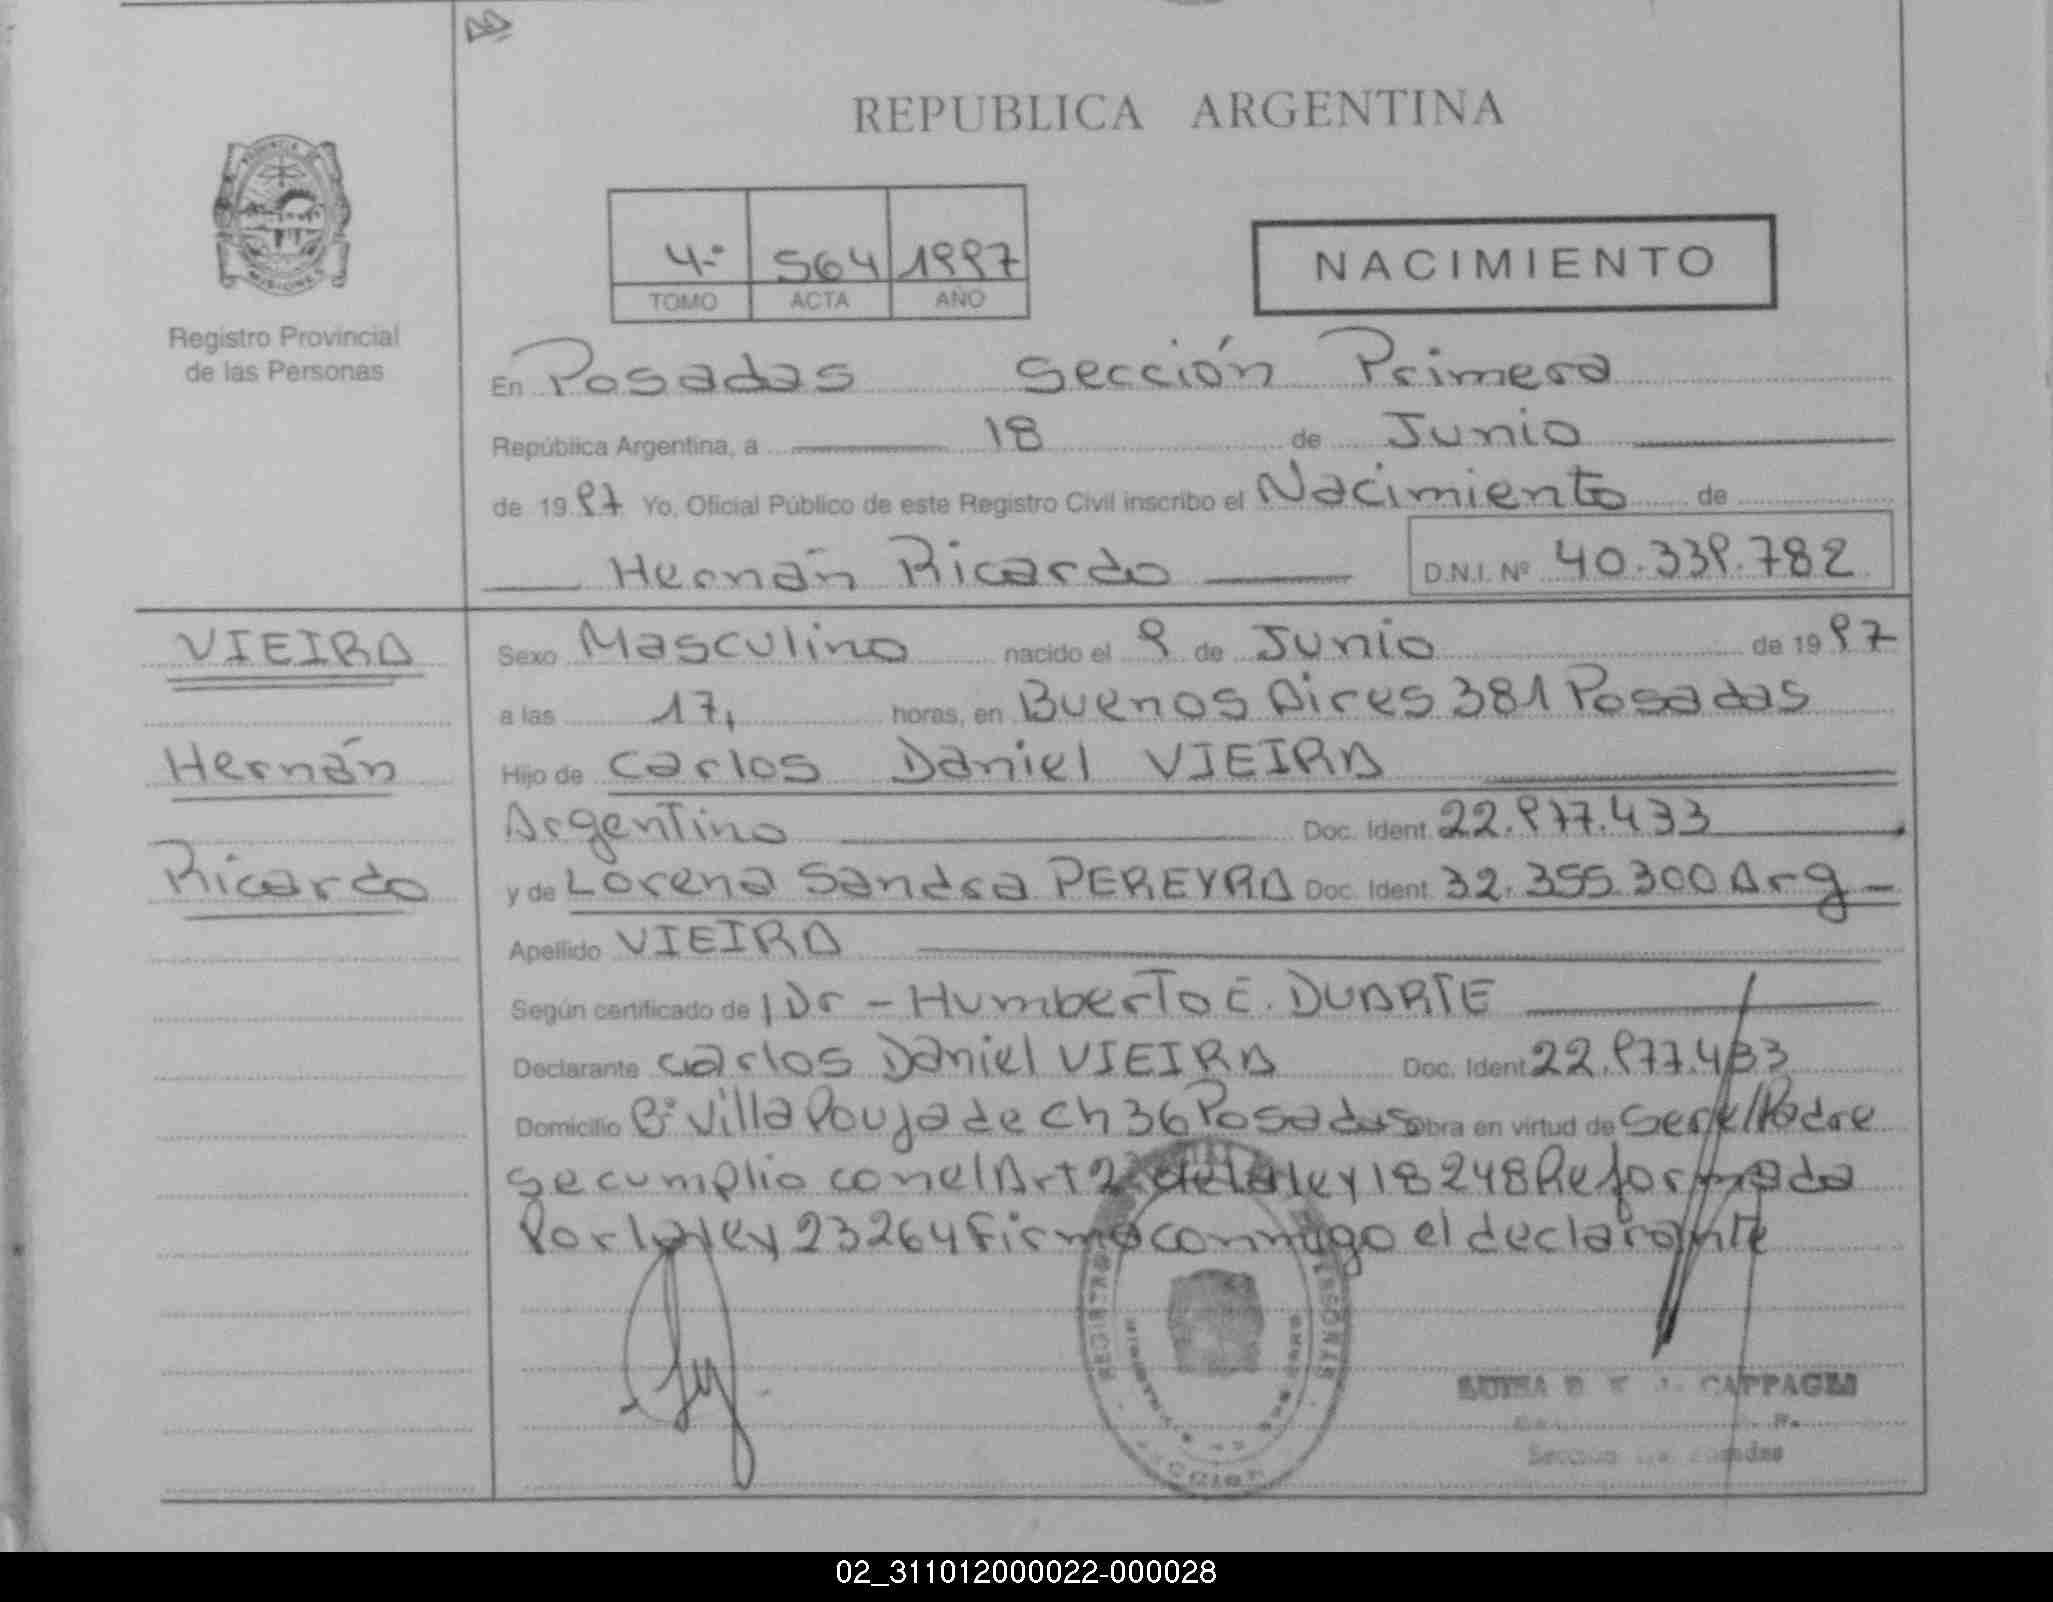 REPUBLICA ARGENTINA
4º 564 1997
TOMO ACTA AÑO
NACIMIENTO
Registro Provincial
de las Personas
En Posadas Sección Primera
República Argentina, a 18 de Junio
de 1997 Yo, Oficial Público de este Registro Civil inscribo el Nacimiento de
Hernán Ricardo D.N.I. Nº 40.339.782
VIEIRA
Hernán
Ricardo
Sexo Masculino nacido el 9 de Junio de 1997
a las 17, horas, en Buenos Aires 381 Posadas
Hijo de Carlos Daniel VIEIRA
Argentino Doc. Ident. 22.977.433
y de Lorena Sandra PEREYRA Doc. Ident. 32.355.300 Arg
Apellido VIEIRA
Según certificado de Dr - Humberto E. DUARTE
Declarante Carlos Daniel VIEIRA Doc. Ident. 22.977.433
Domicilio Bº Villa Poujade Ch 36 Posadas obra en virtud de ser el Padre
se cumplio con el Art 2 de la ley 18248 Reformada
Por la ley 23264 firma conmigo el declarante
REGISTRO
CAPPAGLI
Sección
02_311012000022-000028